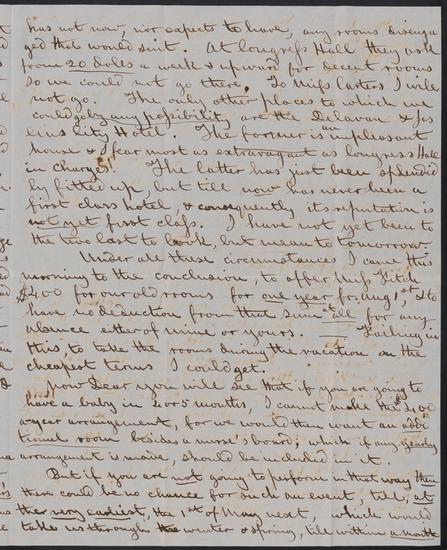 has not now, nor expects to have, any rooms disenga
ged that would suit. At Congress Hall they ask
from 20 dolls a week & upward for decent rooms
so we could not go there. To Miss Carters I will
not go. The only other places to which we
could go by any possibility are the Delavan & Jos
lins City Hotel. The former is an unpleasant
house & I fear most as extravagant as Congress Hall
in charges. The latter has just been splendid
ly fitted up, but till now has never been a
first class hotel, & consequently its reputation is
not yet first class. I have not yet been to
the two last to look, but mean to tomorrow.
Under all these circumstances I came this
morning to the conclusion, to offer Miss Fitch
$400 for our old rooms for one year fr. Aug 1st & to
have no deduction from that sum at all for any
absence either of mine or yours. — Failing in
this, to take the rooms during the vacation on the
cheapest terms I could get.
Now Dear you will see that if you are going to
have a baby in 4 or 5 months, I cannot make this $400
a year arrangement, for we would then want an addi
tional room besides a nurse's board; which if any yearly
arrangement is made, should be included in it.
But if you are not going to perform in that way then
there could be no chance for such an event, till, at
the very earliest, the 1st of May next, which would
take us through the winter & spring, till within a month